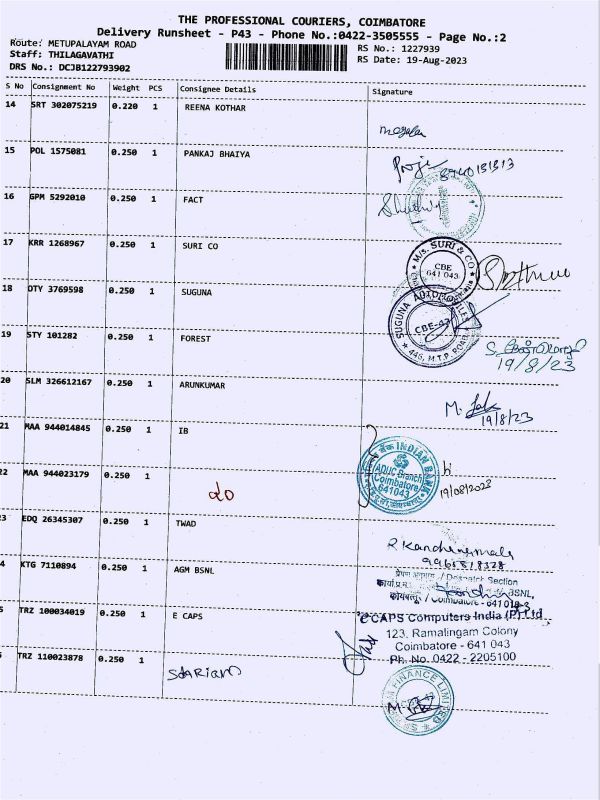 THE PROFESSIONAL COURIERS, COIMBATORE
Delivery Runsheet - P43 - Phone No.:0422-3505555 - Page No.:2
Route: METUPALAYAM ROAD
Staff: THILAGAVATHI
DRS No.: DCJB122793902
RS No.: 1227939
RS Date: 19-Aug-2023
S No Consignment No Weight PCS Consignee Details Signature
14 SRT 302075219 0.220 1 REENA KOTHAR
15 POL 1575081 0.250 1 PANKAJ BHAIYA
16 GPM 5292010 0.250 1 FACT
17 KRR 1268967 0.250 1 SURI CO
M/s. SURI & CO
CBE
641 043
18 DTY 3769598 0.250 1 SUGUNA
SUGUNA
CBE-43
446, M.T.P. ROAD
19 STY 101282 0.250 1 FOREST
19/8/23
20 SLM 326612167 0.250 1 ARUNKUMAR
M.
19/8/23
21 MAA 944014845 0.250 1 IB
INDIAN BANK
Branch
Coimbatore
641043
22 MAA 944023179 0.250 1
19/08/2023
EDQ 26345307 0.250 1 TWAD
4 KTG 7110894 0.250 1 AGM BSNL
/ Despatch Section
BSNL,
/ Coimbatore - 641
TRZ 100034019 0.250 1 E CAPS
e CAPS Computers India (P) Ltd.,
123, Ramalingam Colony
Coimbatore - 641 043
Ph. No. 0422 - 2205100
TRZ 110023878 0.250 1
FINANCE LIMITED